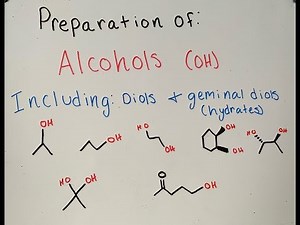 Preparation of:
Alcohols (OH)
Including: Diols & geminal diols
(hydrates)
OH
OH
HO
OH
OH
OH
HO
OH
HO
OH
O
OH